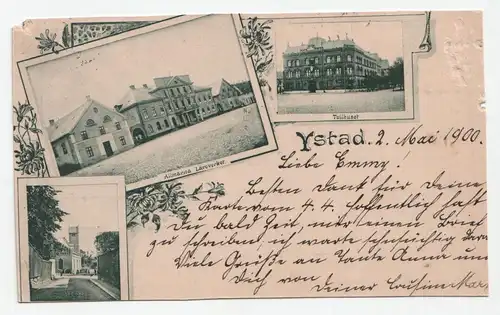 Allmänna Läroverket
Tullhuset
Ystad. 2. Mai 1900.
Liebe Emmy!
Besten Dank für Deine
Karte vom 4.4. hoffentlich hast
Du bald Zeit, mir einen Brief
zu schreiben, ich warte sehnsüchtig
Viele Grüße an Tante Anna und
Dich von
Deiner Cousine